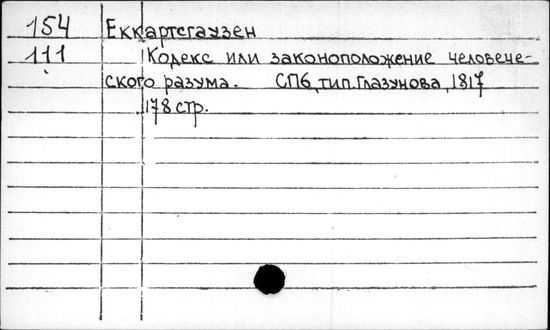 154 Еккартсгаузен
111 Кодекс или законоположение человече-
ского разума. СПб, тип. Глазунова, 1817
178 стр.